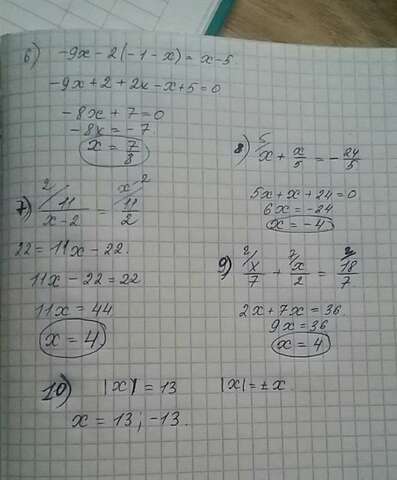 6) -9x - 2(-1-x) = x-5
-9x+2+2x-x+5=0
-8x+7=0
-8x=-7
x = 7/8
7) 2/ 11/(x-2) = x-2/ 11/2
22=11x-22.
11x-22=22
11x=44
x=4
8) 5/ x + x/5 = -24/5
5x+x+24=0
6x=-24
x=-4
9) 2/ x/7 + 7/ x/2 = 2/ 18/7
2x+7x=36.
9x=36
x=4
10) |x|=13 |x|=±x.
x=13; -13.